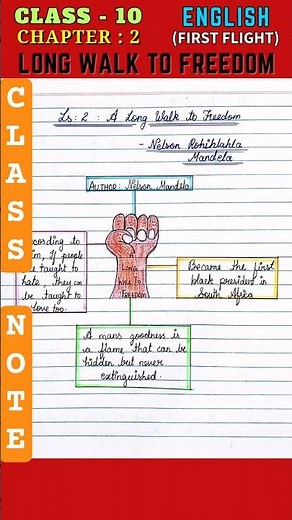 CLASS - 10
CHAPTER : 2
ENGLISH
(FIRST FLIGHT)
LONG WALK TO FREEDOM
CLASS NOTE
Ls: 2 : A Long Walk to Freedom
- Nelson Rohihlahla
Mandela
AUTHOR: Nelson Mandela
cording to
m, If people
e taught to
hate, they can
be taught to
love too.
A
LONG
WALK TO
FREEDOM
Became the first
black president in
South Africa
A mans goodness is
a flame that can be
hidden but never
extinguished.